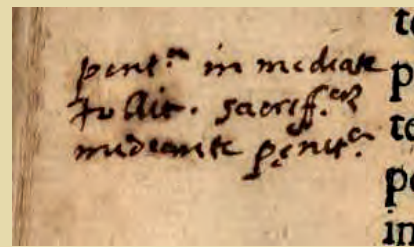 penit.ᵃ in mediate
tollit. sacrif.
mediante penit.ᵃ
te
p
te
pe
in